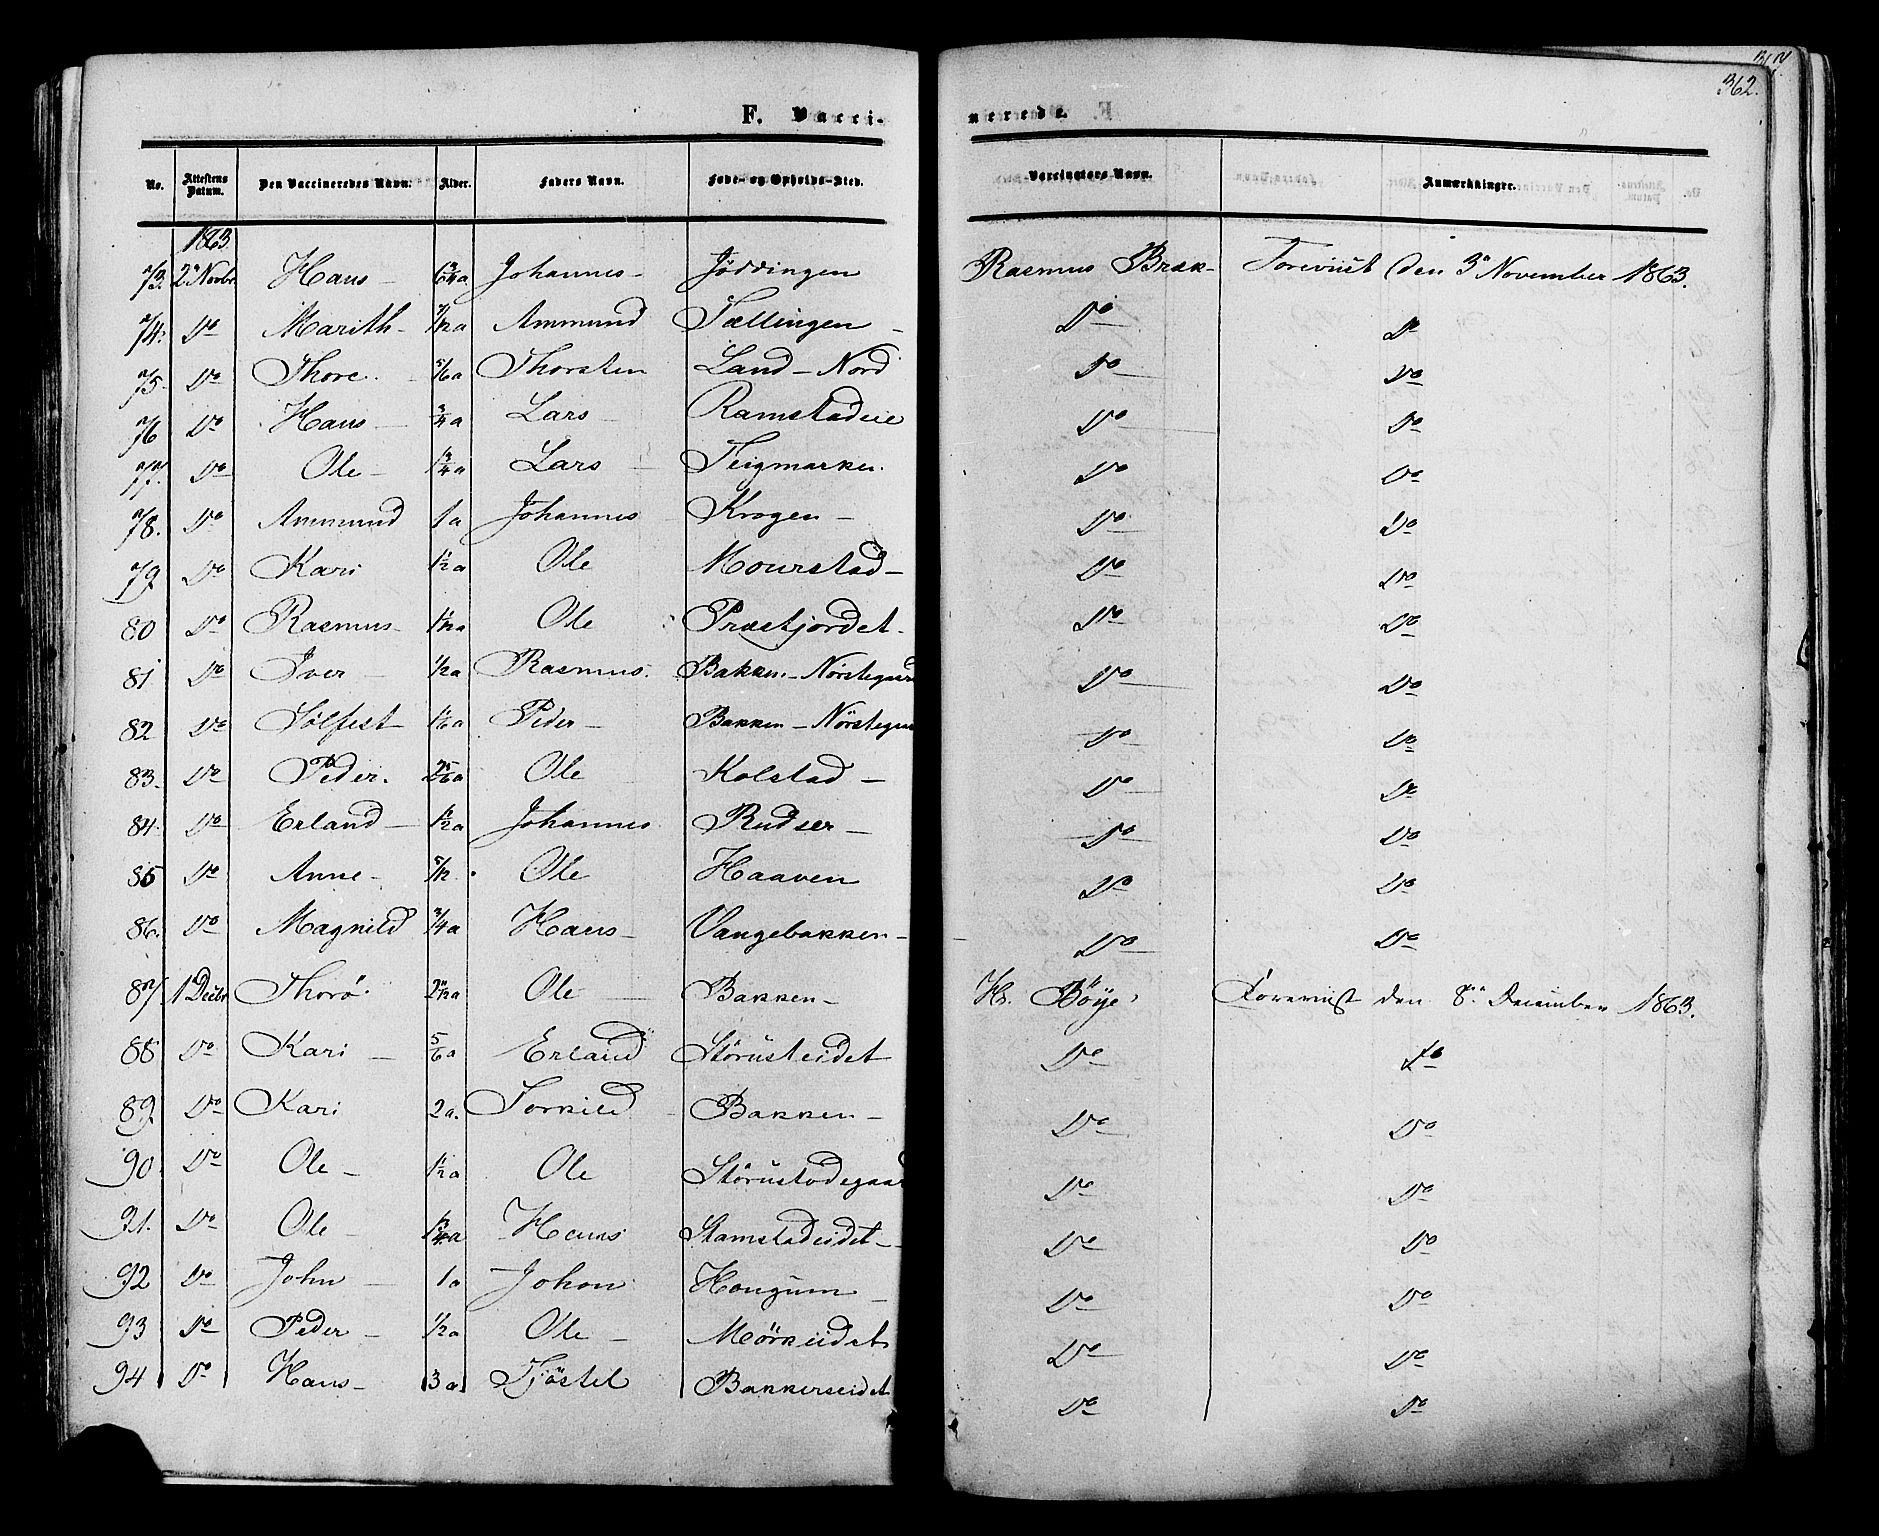 362.
F. Vacci-
nerede.
No. Attestens Datum. Den Vaccineredes Navn. Alder. Faders Navn. Føde- og Opholds-Sted. Vaccinators Navn. Anmærkninger.
1863.
73. 2 Novbr. Hans - Johannes - Jöddingen Rasmus Bræk- Foreviist den 3 November 1863.
74. Do Marith - 7/12 a Ammund Sællingen - Do Do
75. Do Thore. 5/6 a Thorsten Land - Nord Do Do
76 Do Hans - 3/4 a Lars - Ramstadeie Do Do
77. Do Ole - 1 3/4 a Lars - Teigmarken. Do Do
78. Do Ammund 1 a Johannes - Krogen - Do Do
79 Do Kari 1/2 a Ole Mourstad - Do Do
80 Do Rasmus - Ole Præstjordet - Do Do
81 Do Iver - 1/2 a Rasmus. Bakken - Nørstegaard Do Do
82 Do Sølfest Peder - Bakken - Nørstegaa Do Do
83. Do Peder. 2 5/6 a Ole Kolstad - Do Do
84. Do Erland - 1 1/2 a Johannes Rudser - Do Do
85 Do Anne - 5/12. Ole Haaven Do Do
86. Do Magnild 3/4 a Hans - Vangebakken - Do Do
87 1 Decbr Thorö. Ole - Bakken - Hr. Böye, Foreviist den 8de December 1863.
88 Do Kari - 5/6 a Erland Störusteidet Do Do
89 Do Kari 2 a. Torkild - Bakken - Do Do
90. Do Ole - 1 1/2 a Ole Störustadegaar Do Do
91. Do Ole - 1 3/4 a Hans Stamstadeidet - Do Do
92 Do John - 1 a Johan Hougum - Do Do
93 Do Peder - 1/2 a Ole - Mörkeidet Do Do
94 Do Hans - 3 a Tjöstel Bakkerseidet Do Do